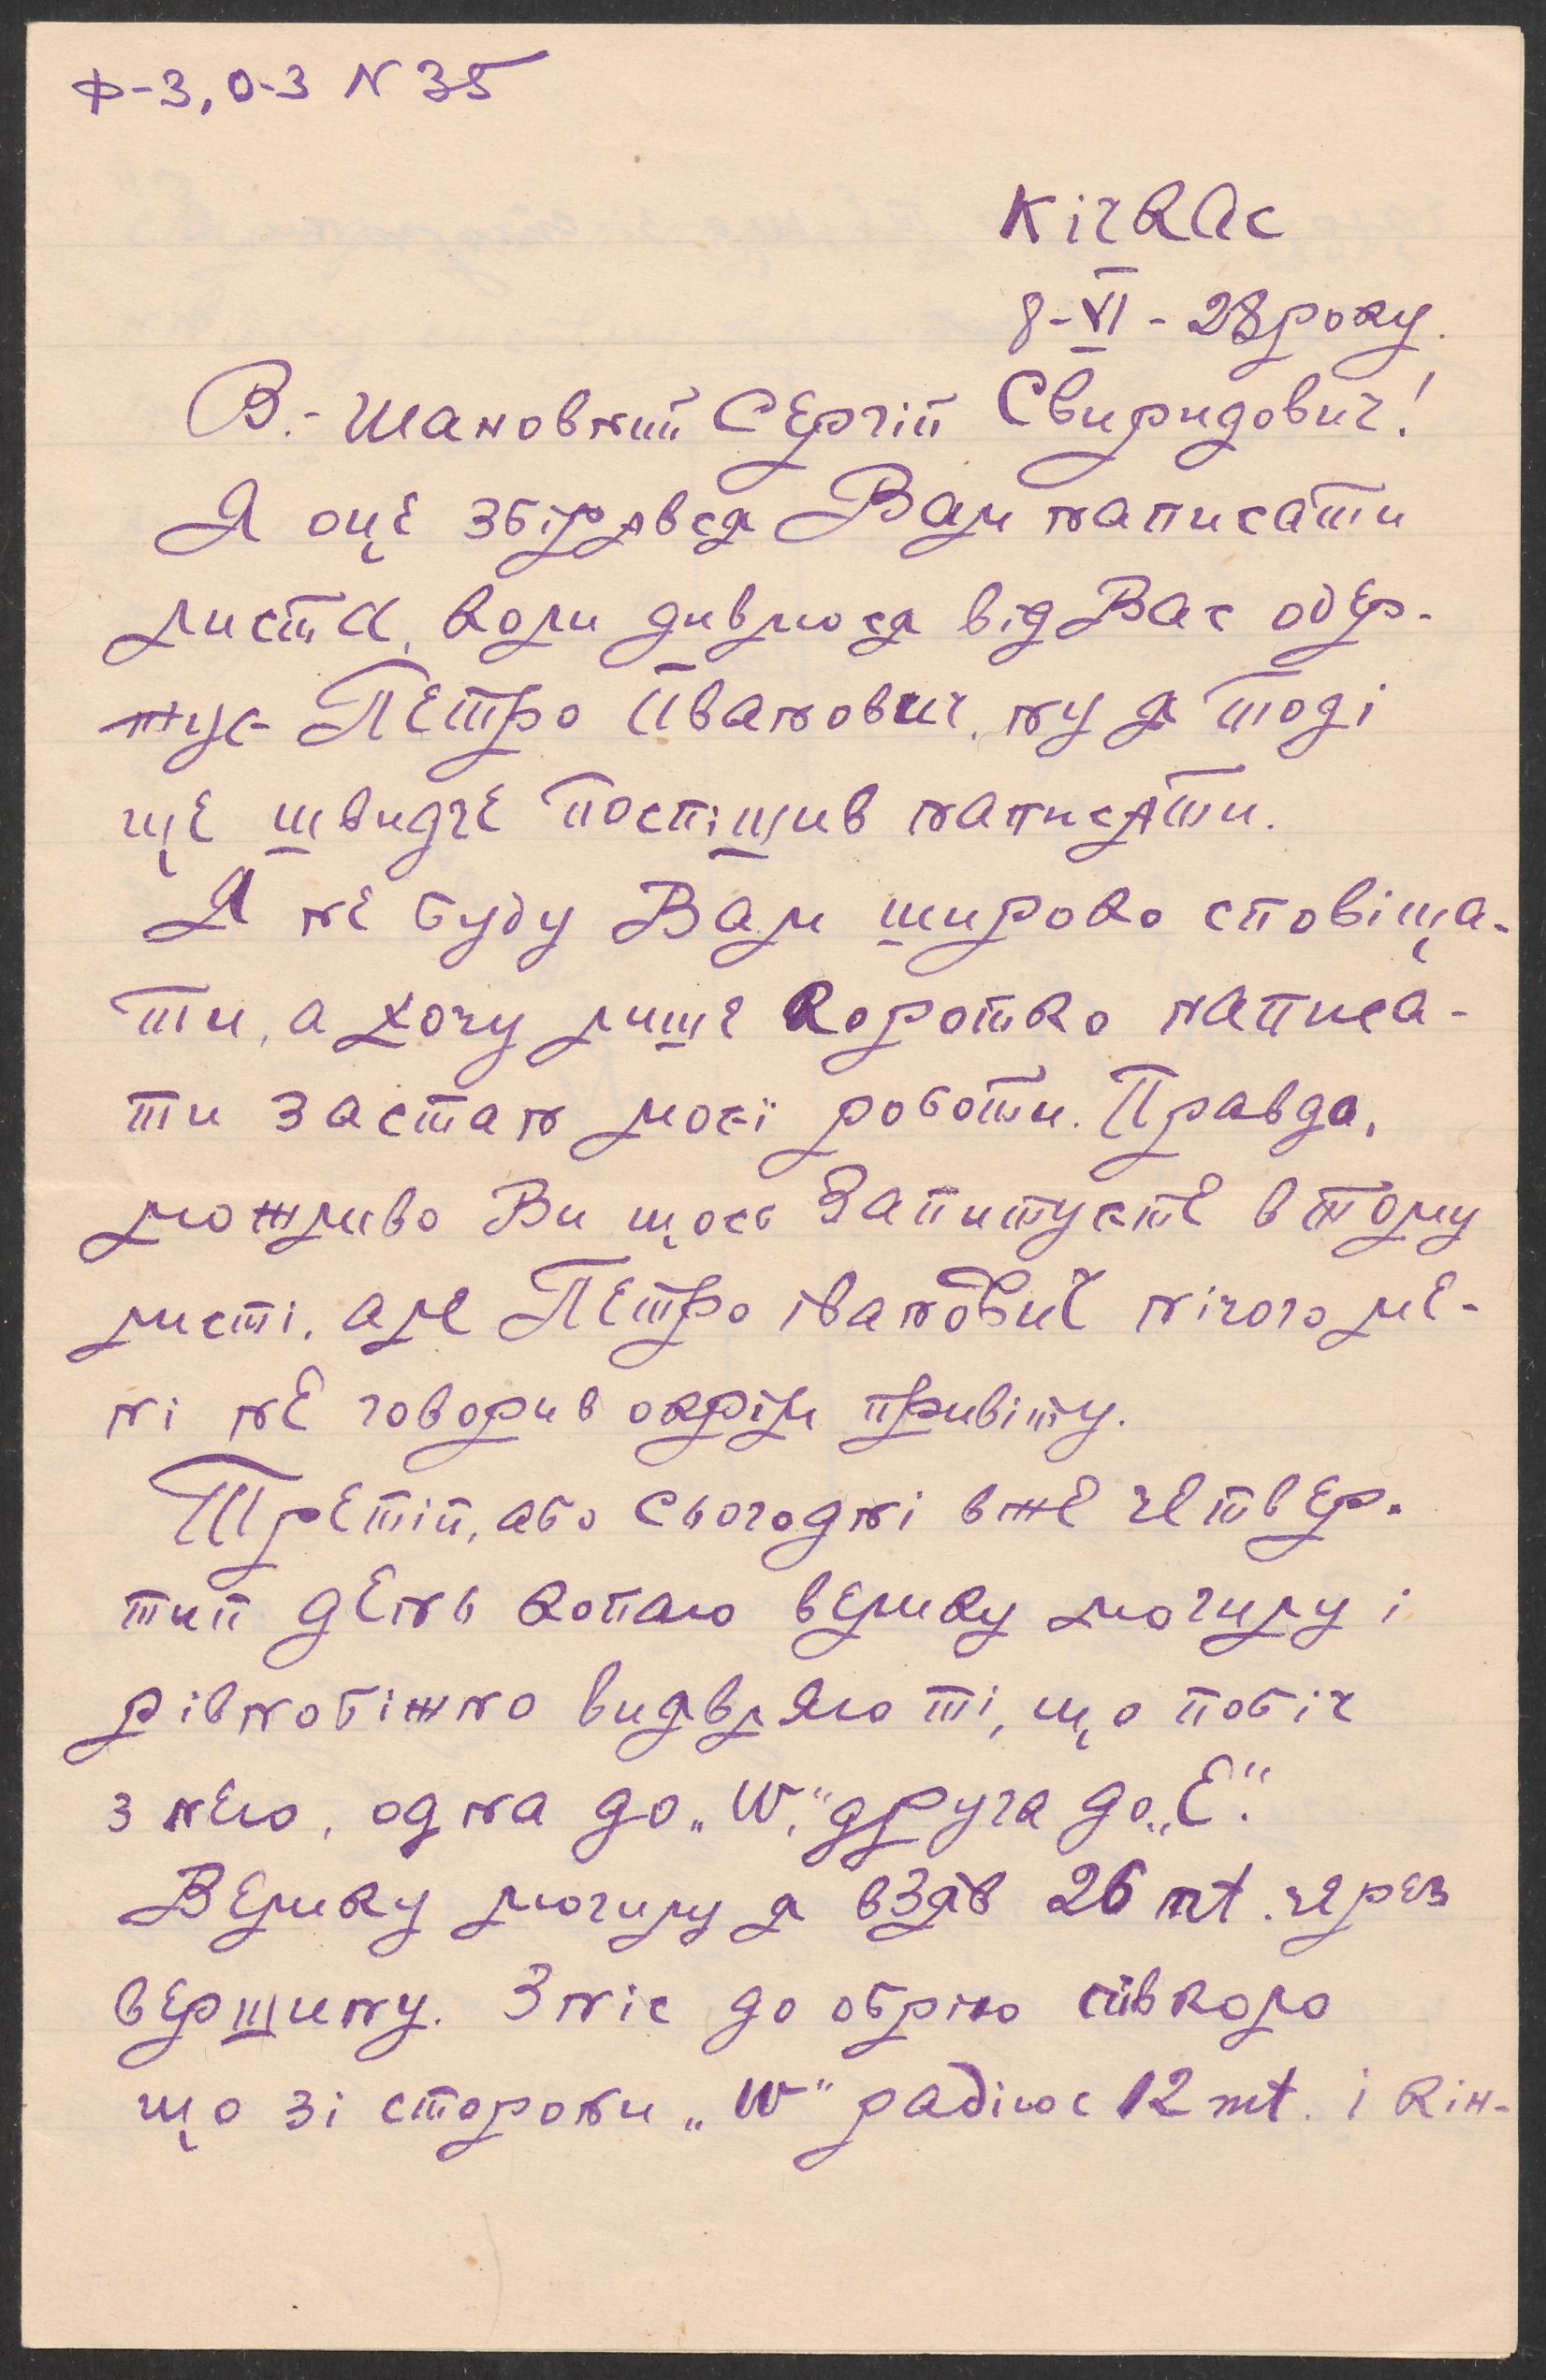 Ф-3, О-3 N 35
Кічкас
8-VI-28 року.
В.-Шановний Сергій Свиридович!
Я оце збірався Вам написати
листа, коли дивлюся від Вас одер-
жує Петро Іванович, ну я тоді
ще швидче поспішив написати.
Я не буду Вам широко сповіща-
ти, а хочу лише коротко написа-
ти за стан моєї роботи. Правда,
можливо Ви щось запитуєте в тому
листі, але Петро Іванович нічого ме-
ні не говорив окрім привіту.
Третій, або сьогодні вже четвер-
тий день копаю велику могилу і
рівнобіжно виявляю ті, що побіч
з нею, одна до „W", друга до „Е".
Велику могилу я взяв 26 mt. через
вершину. Зніс до обрію півколо
що зі сторони „W" радіюс 12 mt. і кін-